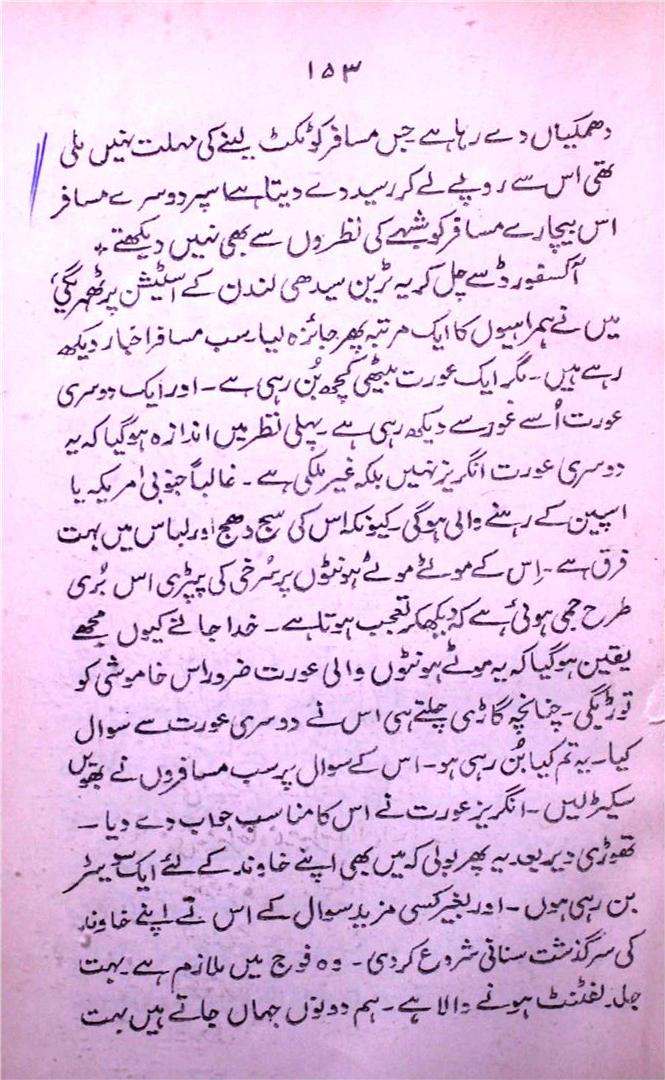 ۱۵۳
دھمکیاں دے رہا ہے جس مسافر کو ٹکٹ لینے کی مہلت نہیں ملی
تھی اس سے روپے لے کر رسید دے دیتا ہے اسپر دوسرے مسافر
اس بیچارے مسافر کو شبہے کی نظروں سے بھی نہیں دیکھتے ۔
آکسفورڈ سے چل کر یہ ٹرین سیدھی لندن کے اسٹیشن پر ٹھہریگی،
میں نے ہمراہیوں کا ایک مرتبہ پھر جائزہ لیا۔ سب مسافر اخبار دیکھ
رہے ہیں ۔ مگر ایک عورت بیٹھی کچھ بُن رہی ہے ۔ اور ایک دوسری
عورت اُسے غور سے دیکھ رہی ہے ۔ پہلی نظر میں اندازہ ہوگیا کہ یہ
دوسری عورت انگریز نہیں بلکہ غیر ملکی ہے ۔ غالباً جنوبی امریکہ یا
اسپین کے رہنے والی ہوگی ۔ کیونکہ اس کی سج دھج اور لباس میں بہت
فرق ہے ۔ اِس کے موٹے موٹے ہونٹوں پر سُرخی کی پپڑی اس بُری
طرح جمی ہوئی ہے کہ دیکھکر تعجب ہوتا ہے ۔ خدا جانے کیوں مجھے
یقین ہوگیا کہ یہ موٹے ہونٹوں والی عورت ضرور اس خاموشی کو
توڑیگی ۔ چنانچہ گاڑی چلتے ہی اس نے دوسری عورت سے سوال
کیا ۔ یہ تم کیا بُن رہی ہو ۔ اس کے سوال پر سب مسافروں نے بھویں
سکیڑ لیں ۔ انگریز عورت نے اس کا مناسب جواب دے دیا ۔
تھوڑی دیر بعد یہ پھر بولی کہ میں بھی اپنے خاوند کے لئے ایک سویٹر
بن رہی ہوں ۔ اور بغیر کسی مزید سوال کے اس نے اپنے خاوند
کی سرگذشت سنانی شروع کردی ۔ وہ فوج میں ملازم ہے ۔ بہت
جلد لفٹنٹ ہونے والا ہے ۔ ہم دونوں جہاں جاتے ہیں بہت